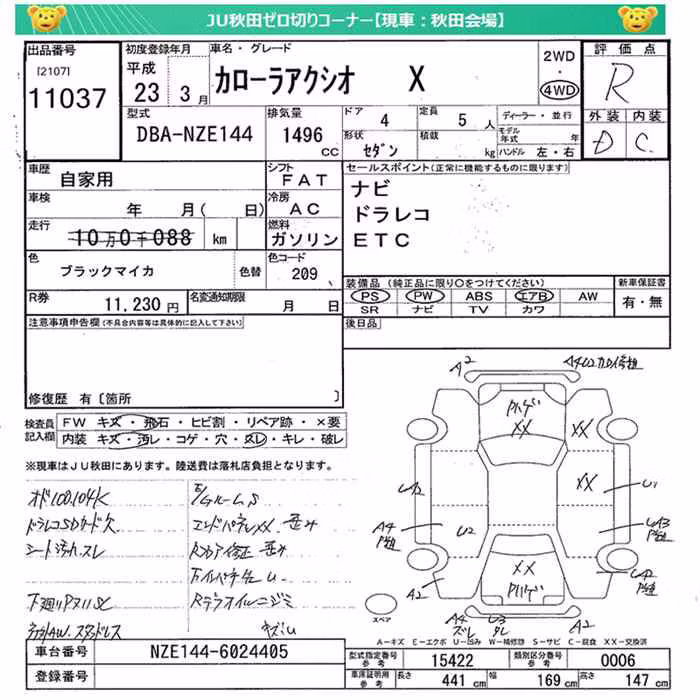 JU秋田ゼロ切りコーナー【現車：秋田会場】
出品番号
[2107]
11037
初度登録年月
平成
23 3月
車名・グレード
カローラアクシオ X
2WD
・
4WD
評価点
R
外装 内装
D C
型式
DBA-NZE144
排気量
1496
CC
ドア 4
定員 5 人
形状 セダン
積載 kg
ディーラー・並行
モデル年式 年
ハンドル 左・右
車歴
自家用
シフト
FAT
車検
年 月( 日)
冷房
AC
走行
10万0千088 km
燃料
ガソリン
色
ブラックマイカ
色替
色コード
209
R券
11,230円
名変通知期限
月 日
セールスポイント(正常に機能するものに限ります)
ナビ
ドラレコ
ETC
装備品 (純正品に限り○をつけてください)
PS PW ABS エアB AW
SR ナビ TV カワ
新車保証書
有・無
後日品
注意事項申告欄(不具合内容等は具体的に記入して下さい)
修復歴 有〔箇所 〕
検査員
記入欄
FW キズ・飛石・ヒビ割・リペア跡・×要
内装 キズ・汚レ・コゲ・穴・スレ・キレ・破レ
※現車はJU秋田にあります。陸送費は落札店負担となります。
オド100,104K
ドラレコSDカード欠
シート汚れ.スレ
E/GルームS
エンドパネルXX
A2
XX
XX
XX
XX
U1
U2
A4
A2
A4
ズレ
U3
スペア
A－キズ E－エクボ U－凹み W－補修跡 S－サビ C－腐食 XX－交換済
車台番号
NZE144-6024405
登録番号
型式指定番号
参考
15422
類別区分番号
参考
0006
車庫証明用
参考
長さ 441 cm
幅 169 cm
高さ 147 cm